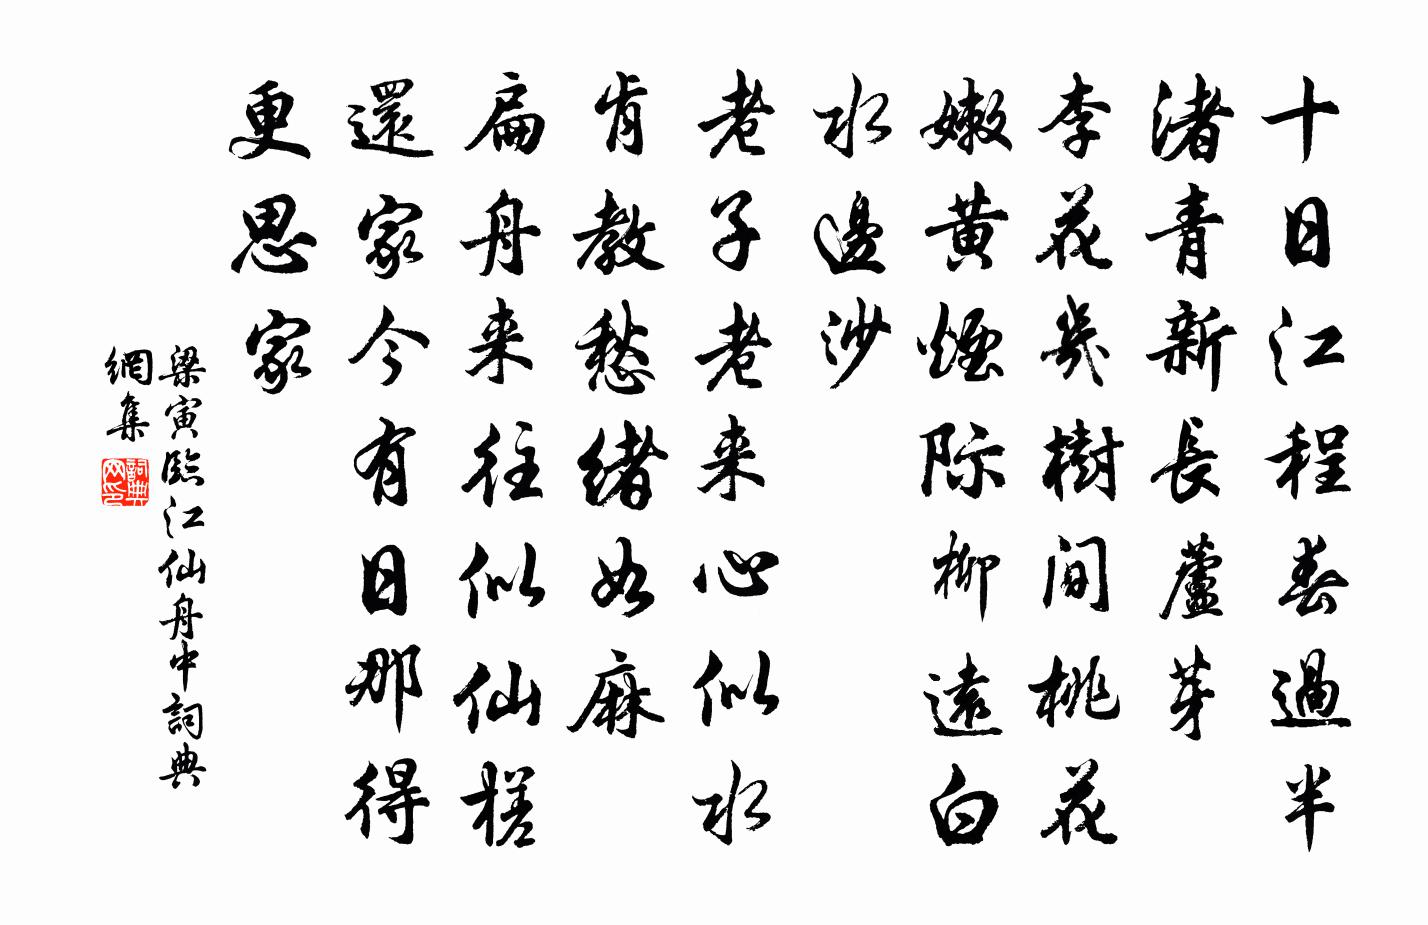 十日江程春過半
渚青新長蘆芽
李花幾樹間桃花
嫩黄煙际柳遠白
水邊沙
老子老来心似水
肯教愁緒如麻
扁舟来往似仙槎
還家今有日那得
更思家
梁寅臨江仙舟中詞典
網集
詞典
网印